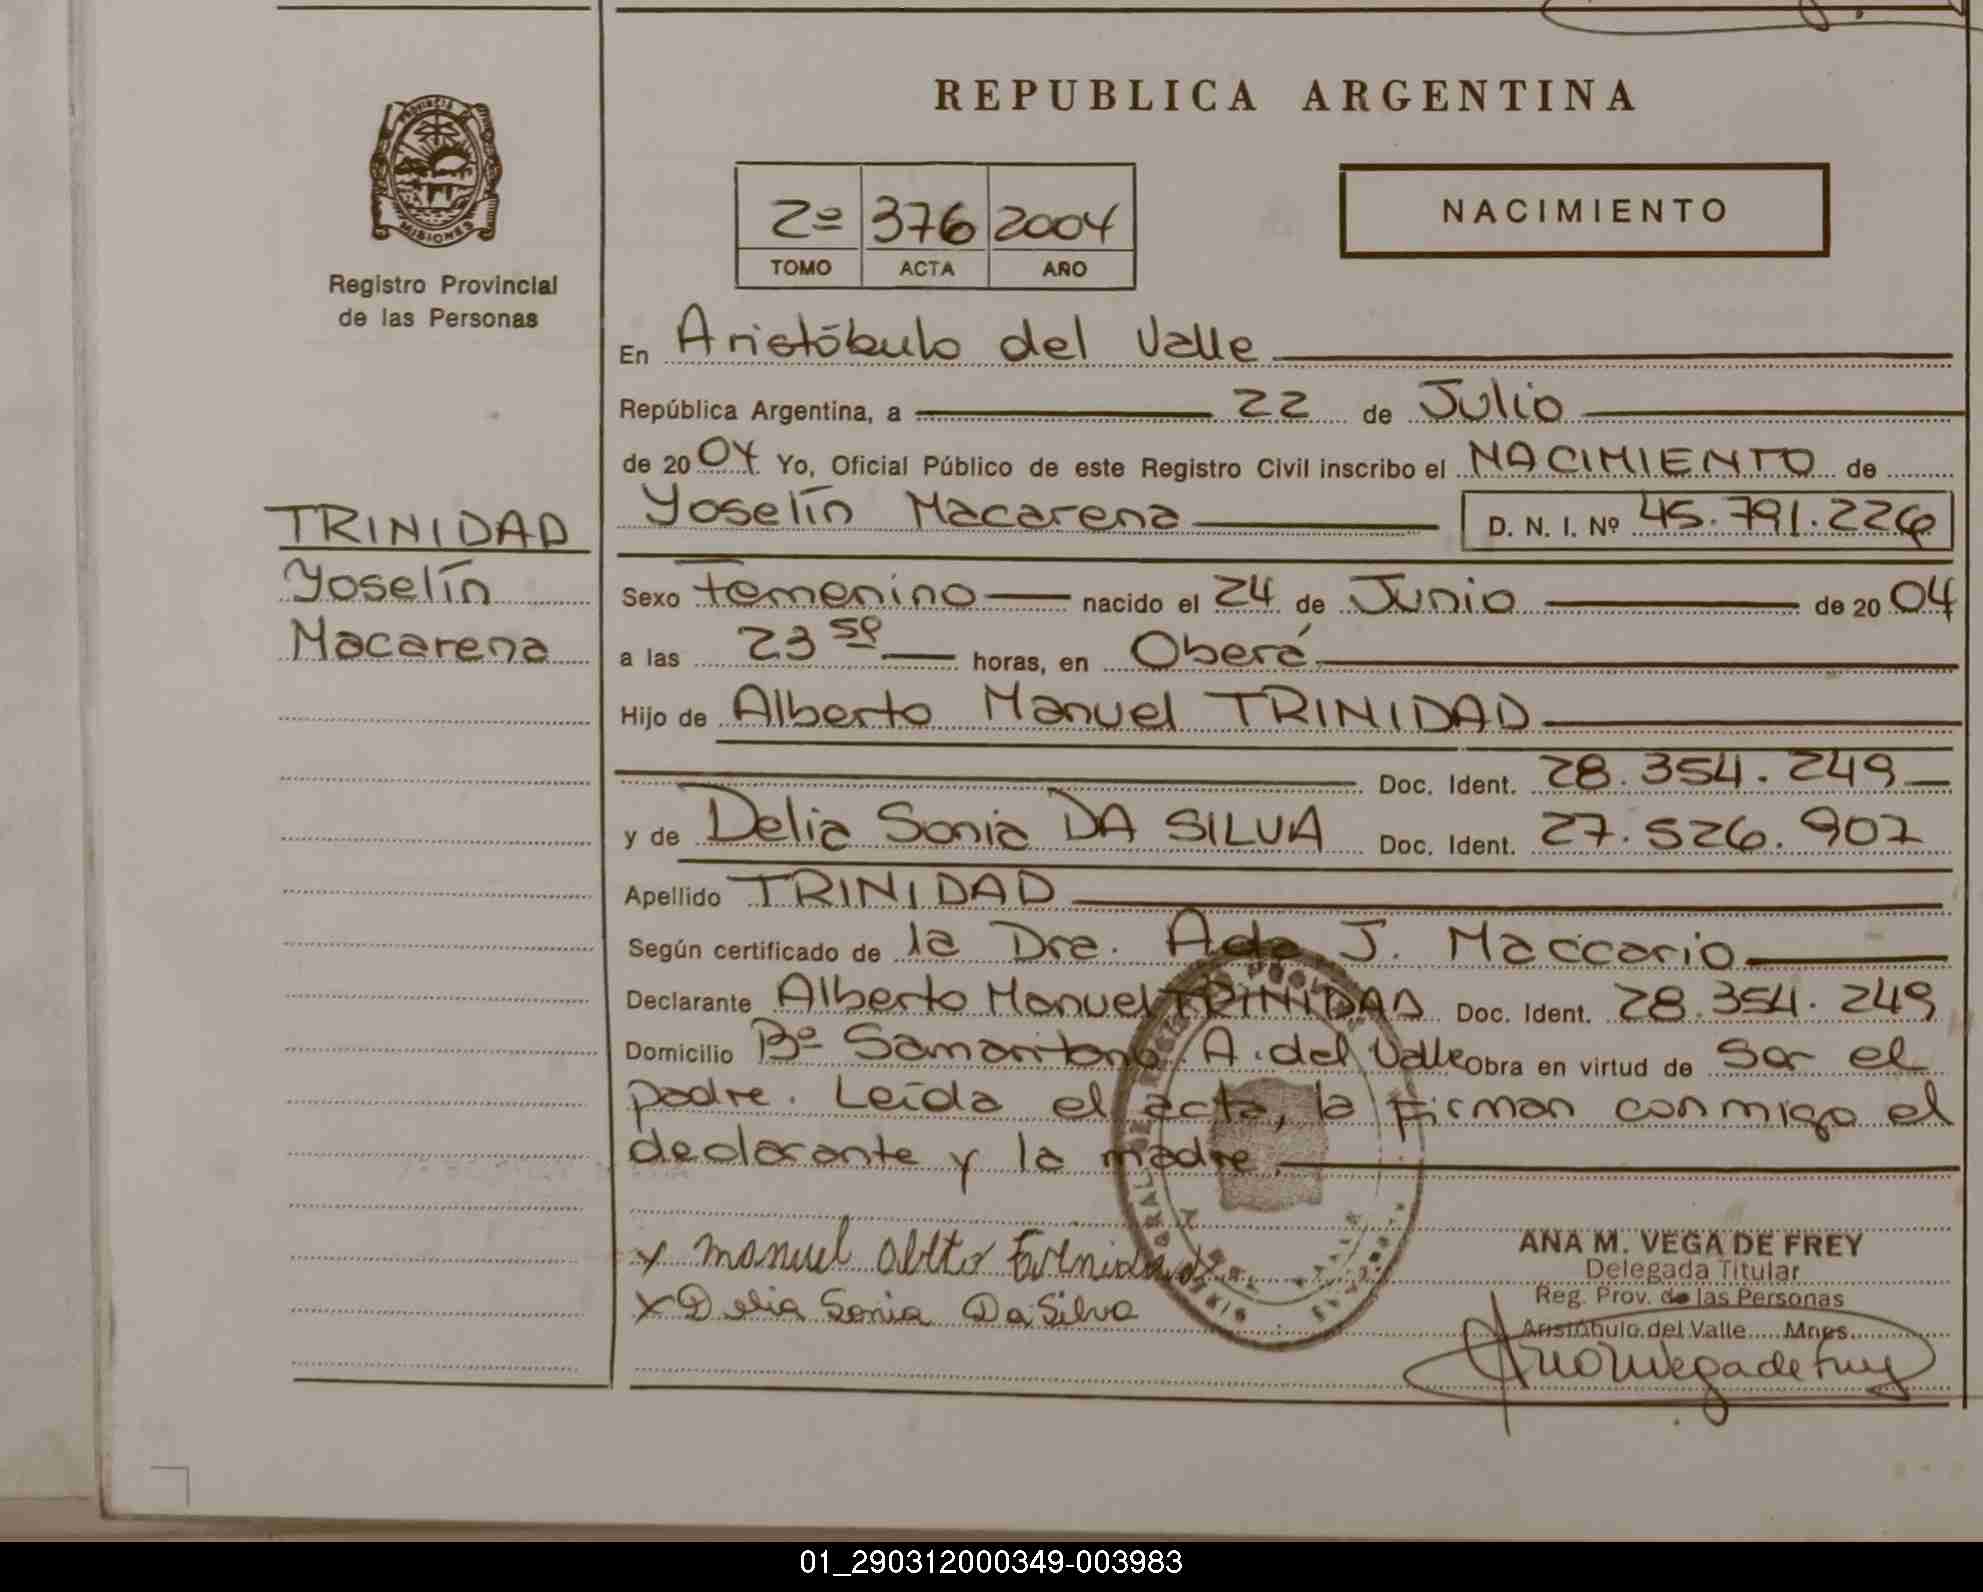 REPUBLICA ARGENTINA
PROVINCIA DE
MISIONES
Registro Provincial
de las Personas
2º 376 2004
TOMO ACTA AÑO
NACIMIENTO
En Aristóbulo del Valle
República Argentina, a 22 de Julio
de 2004. Yo, Oficial Público de este Registro Civil inscribo el NACIMIENTO de
Yoselín Macarena D. N. I. Nº 45.791.226
TRINIDAD
Yoselín
Macarena
Sexo Femenino nacido el 24 de Junio de 2004
a las 23 50 horas, en Oberá
Hijo de Alberto Manuel TRINIDAD
Doc. Ident. 28.354.249
y de Delia Sonia DA SILVA Doc. Ident. 27.526.907
Apellido TRINIDAD
Según certificado de la Dra. Ada J. Maccario
Declarante Alberto Manuel TRINIDAD Doc. Ident. 28.354.249
Domicilio Bº Samaritano. A. del Valle Obra en virtud de Ser el
padre. Leída el acta, la firman conmigo el
declarante y la madre.
x manuel alberto trinidad
x Delia Sonia Da Silva
ANA M. VEGA DE FREY
Delegada Titular
Reg. Prov. de las Personas
Aristóbulo del Valle Mnes.
01_290312000349-003983